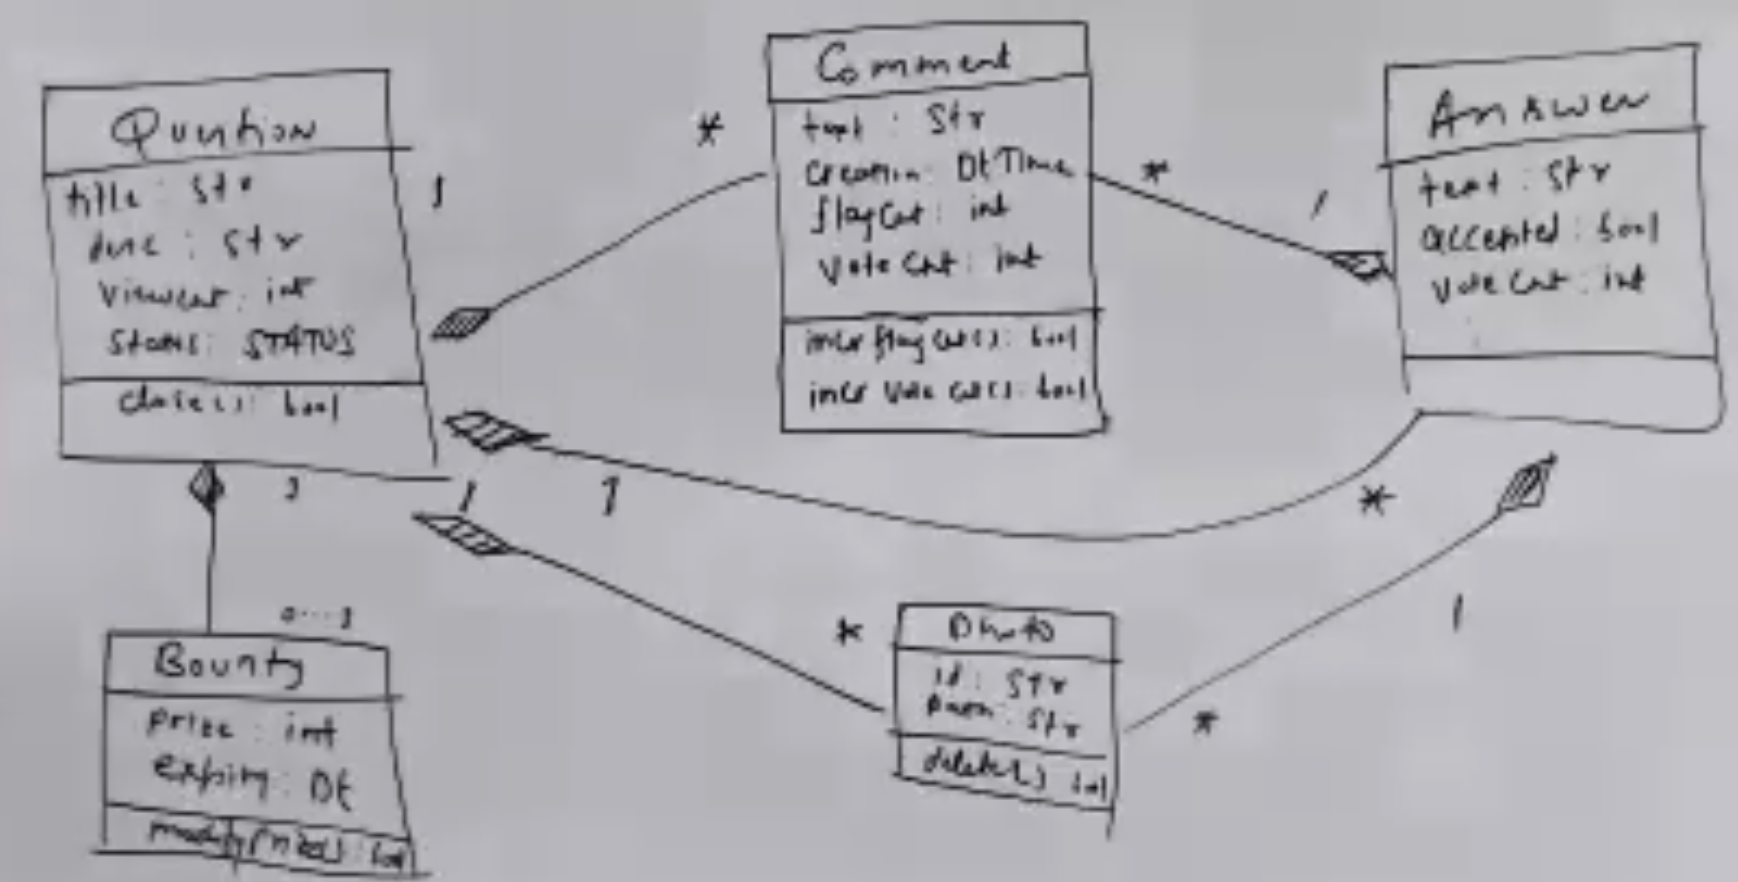 Question
title: Str
desc: Str
viewcnt: int
Status: STATUS
close(): bool
1
*
Comment
text: Str
Creation: DtTime
flagCnt: int
Vote Cnt: int
incr flag Cnt(): bool
incr Vote Cnt(): bool
*
1
Answer
text: Str
accepted: bool
Vote Cnt: int
1
1
1
*
0...1
Bounty
prize: int
expiry: Dt
modifyPrize(): bool
*
Photo
id: Str
Path: Str
delete() bool
*
1